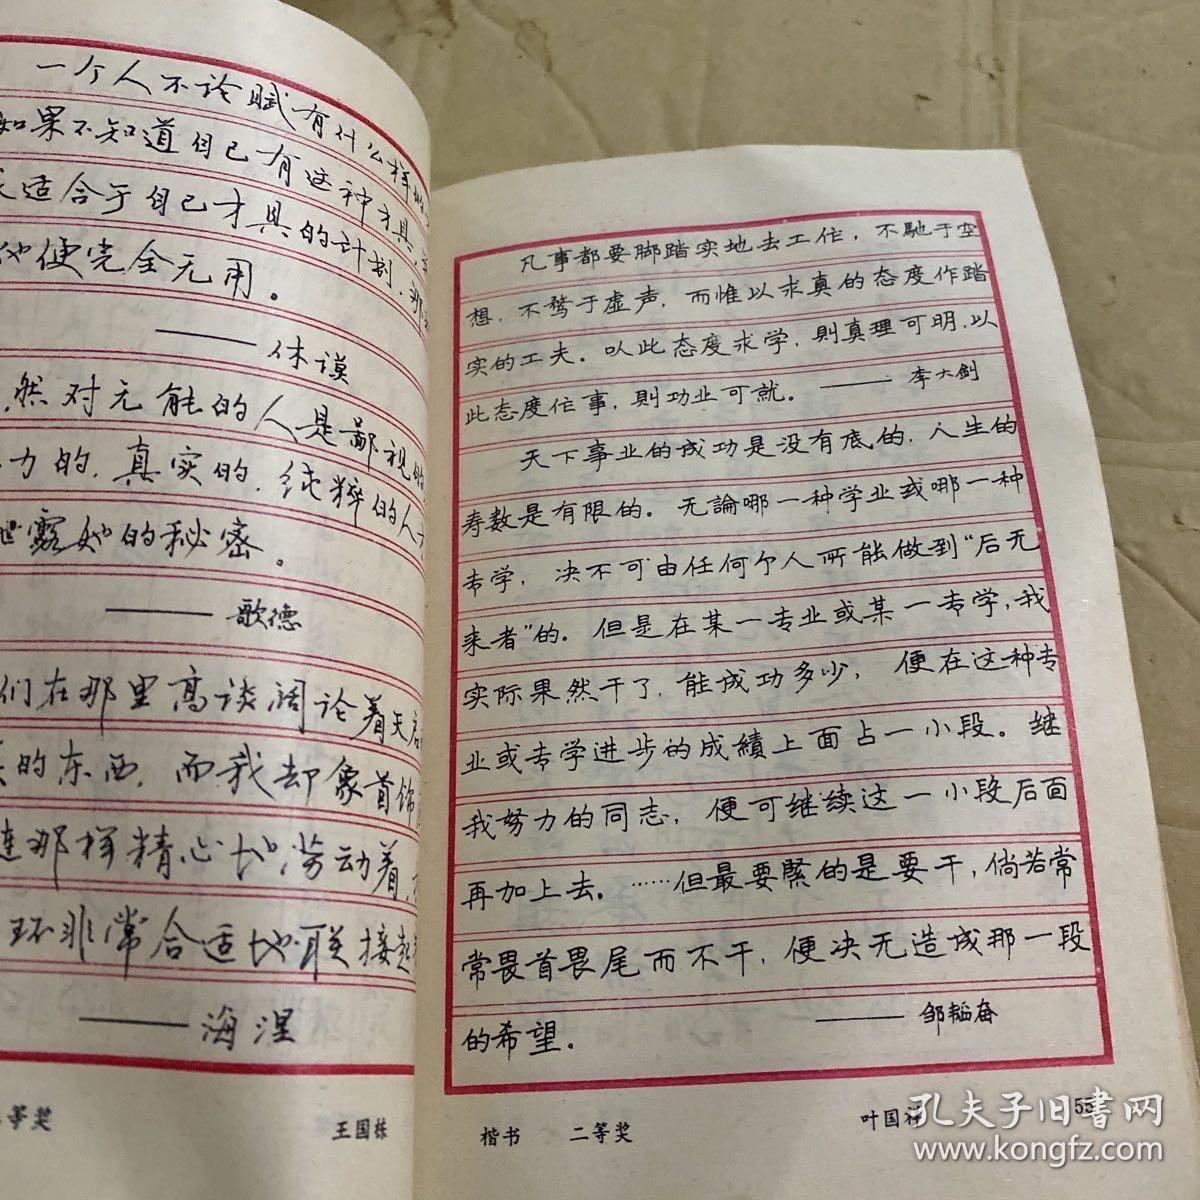 一个人不论赋有什么样
如果不知道自己有这种才具,
适合于自己才具的计划,那
他便完全无用。
——休谟
然对无能的人是鄙视的
力的,真实的,纯粹的人
泄露她的秘密。
——歌德
们在那里高谈阔论着天启
的东西,而我却象首饰
连那样精心地劳动着,
环非常合适地联接起
——海涅
等奖 王国栋
凡事都要脚踏实地去工作,不驰于空
想,不骛于虚声,而惟以求真的态度作踏
实的工夫。以此态度求学,則真理可明,以
此态度作事,則功业可就。——李大剑
天下事业的成功是没有底的,人生的
寿数是有限的。无論哪一种学业或哪一种
专学,决不可由任何个人所能做到“后无
来者”的。但是在某一专业或某一专学,我
实际果然干了,能成功多少,便在这种专
业或专学进步的成績上面占一小段。继
我努力的同志,便可继续这一小段后面
再加上去。……但最要緊的是要干,倘若常
常畏首畏尾而不干,便决无造成那一段
的希望。——邹韬奋
楷书 二等奖 叶国
55
孔夫子旧書网
www.kongfz.com